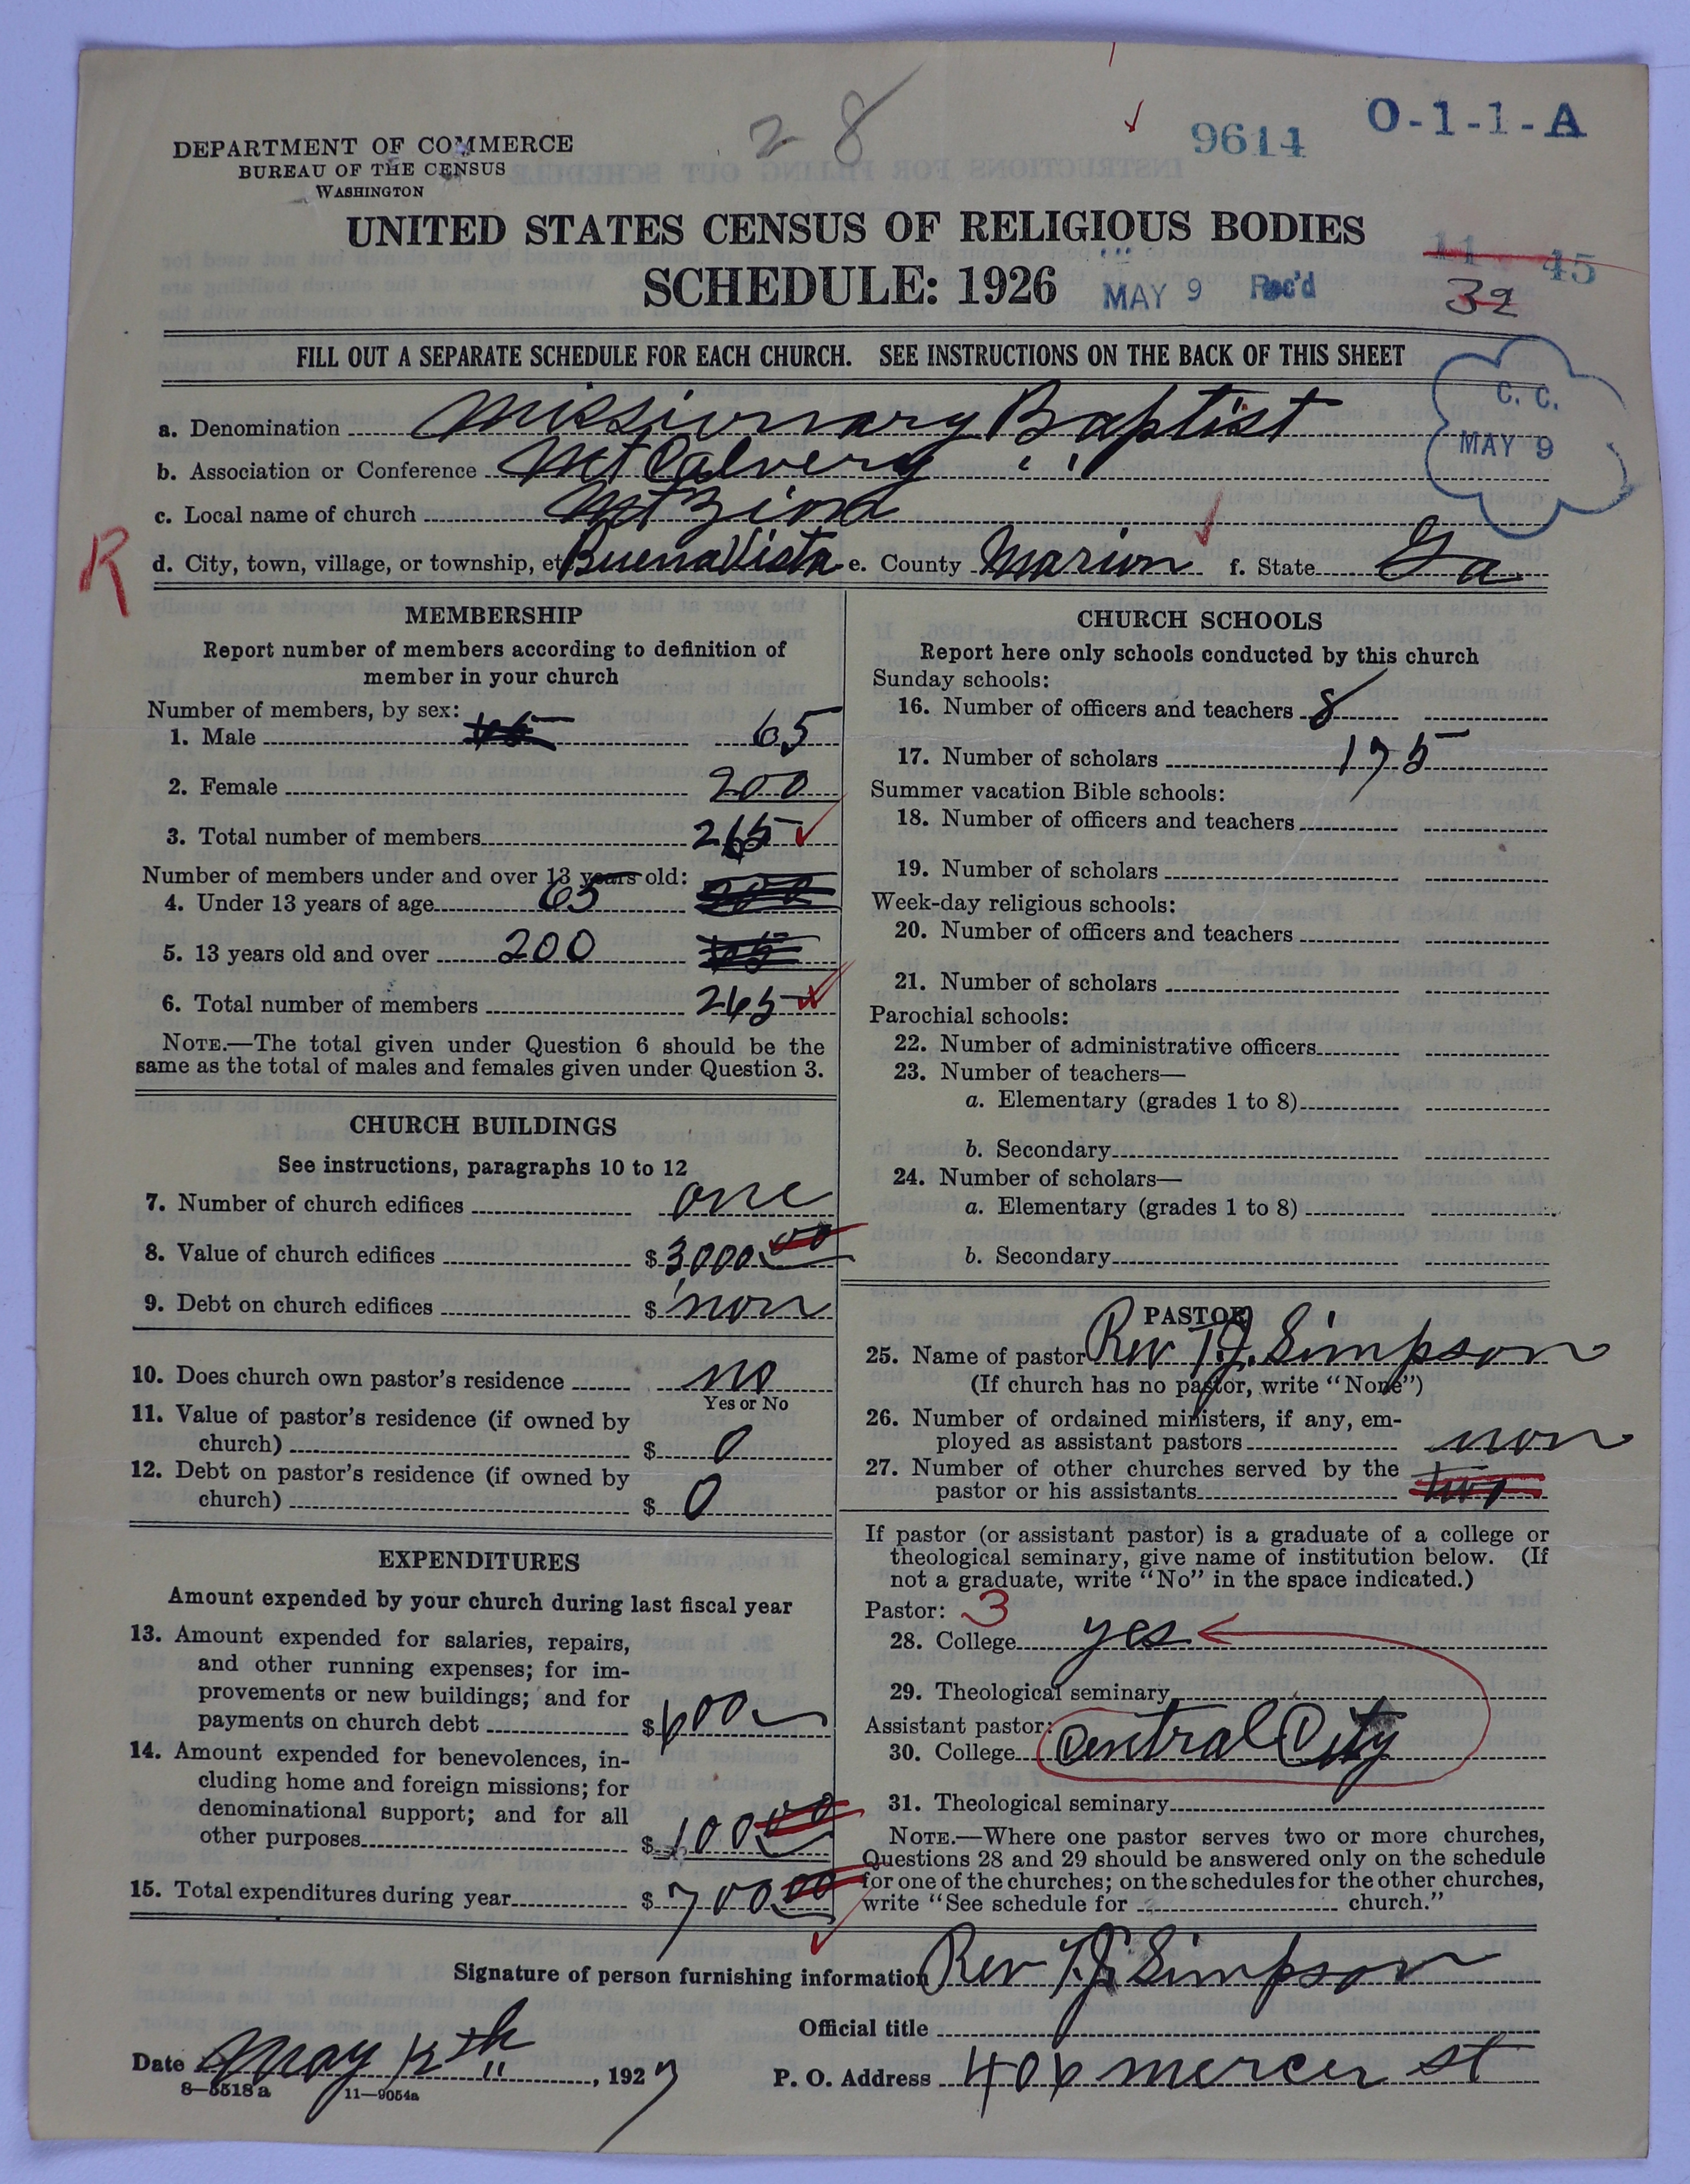 28
9614
O-1-1-A
DEPARTMENT OF COMMERCE
BUREAU OF THE CENSUS
WASHINGTON
UNITED STATES CENSUS OF RELIGIOUS BODIES
11 45
SCHEDULE: 1926
MAY 9 Rec'd
32
FILL OUT A SEPARATE SCHEDULE FOR EACH CHURCH. SEE INSTRUCTIONS ON THE BACK OF THIS SHEET
C. C.
MAY 9
a. Denomination Missionary Baptist
b. Association or Conference Mt Calvery
c. Local name of church Mt Zion
R
d. City, town, village, or township, etc Buena Vista e. County Marion f. State Ga
MEMBERSHIP
Report number of members according to definition of
member in your church
Number of members, by sex:
1. Male 65
2. Female 200
3. Total number of members 265
Number of members under and over 13 years old:
4. Under 13 years of age 65
5. 13 years old and over 200
6. Total number of members 265
NOTE.—The total given under Question 6 should be the
same as the total of males and females given under Question 3.
CHURCH BUILDINGS
See instructions, paragraphs 10 to 12
7. Number of church edifices one
8. Value of church edifices $ 3,000 00
9. Debt on church edifices $ non
10. Does church own pastor's residence no
Yes or No
11. Value of pastor's residence (if owned by
church) $ 0
12. Debt on pastor's residence (if owned by
church) $ 0
EXPENDITURES
Amount expended by your church during last fiscal year
13. Amount expended for salaries, repairs,
and other running expenses; for im-
provements or new buildings; and for
payments on church debt $ 600
14. Amount expended for benevolences, in-
cluding home and foreign missions; for
denominational support; and for all
other purposes $ 100 00
15. Total expenditures during year $ 700 00
CHURCH SCHOOLS
Report here only schools conducted by this church
Sunday schools:
16. Number of officers and teachers 8
17. Number of scholars 175
Summer vacation Bible schools:
18. Number of officers and teachers
19. Number of scholars
Week-day religious schools:
20. Number of officers and teachers
21. Number of scholars
Parochial schools:
22. Number of administrative officers
23. Number of teachers—
a. Elementary (grades 1 to 8)
b. Secondary
24. Number of scholars—
a. Elementary (grades 1 to 8)
b. Secondary
PASTOR
25. Name of pastor Rev T.J. Simpson
(If church has no pastor, write "None")
26. Number of ordained ministers, if any, em-
ployed as assistant pastors non
27. Number of other churches served by the
pastor or his assistants two
If pastor (or assistant pastor) is a graduate of a college or
theological seminary, give name of institution below. (If
not a graduate, write "No" in the space indicated.)
Pastor: 3
28. College yes
29. Theological seminary
Assistant pastor:
30. College Central City
31. Theological seminary
NOTE.—Where one pastor serves two or more churches,
Questions 28 and 29 should be answered only on the schedule
for one of the churches; on the schedules for the other churches,
write "See schedule for church."
Signature of person furnishing information Rev T.J. Simpson
Official title
Date May 12th, 1927
P. O. Address 406 mercer st
8—5518a 11—9054a